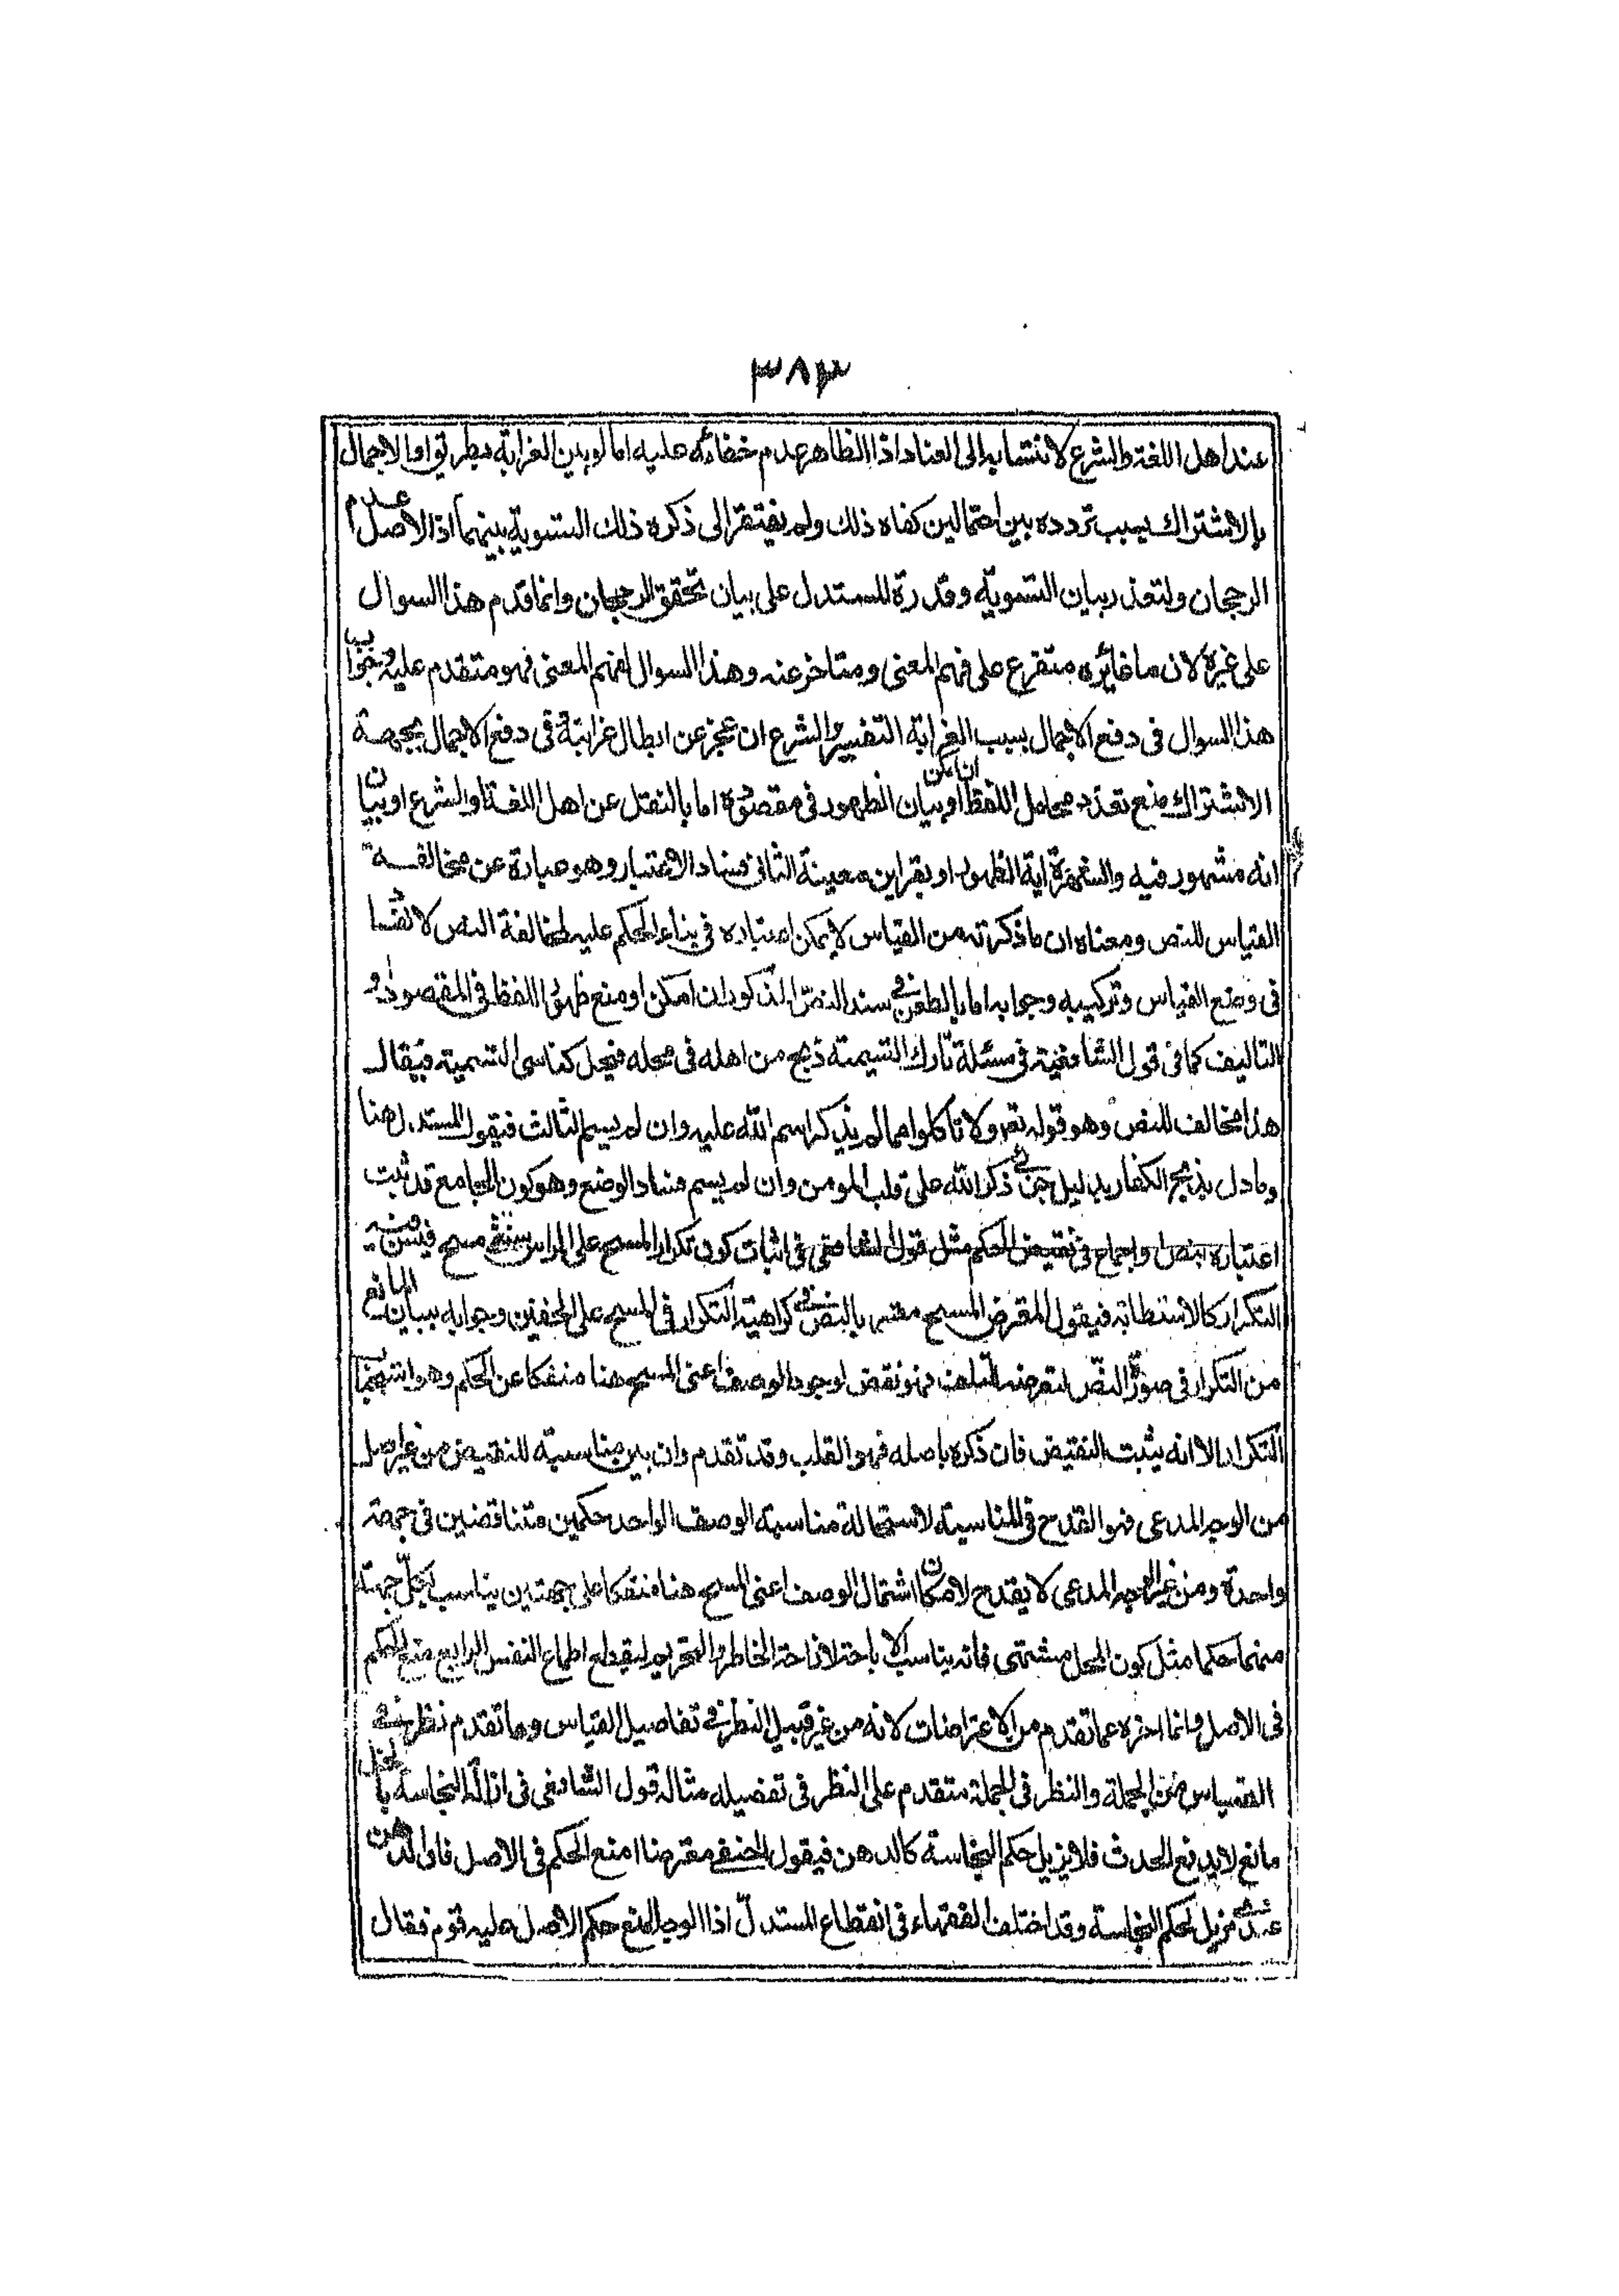 ٣٨٣
عند اهل اللغة والشرع لانتسابه الى العناد اذ الظاهر عدم خفائه عليه اما لو بين الغرابة بطريق او الاجمال
بالاشتراك بسبب تردده بين احتمالين كفاه ذلك ولم يفتقر الى ذكره ذلك التسوية بينهما اذ الاصل عدم
الرجحان ولتعذر بيان التسوية وقدرة المستدل على بيان تحقق الرجحان وانما قدم هذا السوال
على غيره لان ما غايره متفرع على فهم المعنى ومتاخر عنه وهذا السوال لفهم المعنى فهو متقدم عليه وجواب
هذا السوال فى دفع الاجمال بسبب الغرابة التفسير والشرع ان عجز عن ابطال غرابته فى دفع الاجمال بجهة
الاشتراك منع تعدد محامل اللفظ ان امكن او بيان الظهور فى مقصوده اما بالنقل عن اهل اللغة او الشرع او بيان
انه مشهور فيه والشهرة اية الظهور او بقراين معينة الثانى فساد الاعتبار وهو عبارة عن مخالفة
القياس للنص ومعناه ان ما ذكرته من القياس لا يمكن اعتباره فى بناء الحكم عليه لمخالفة النص لا لفساد
فى وضع القياس وتركيبه وجوابه اما بالطعن فى سند النص المذكور ان امكن او منع ظهور اللفظ فى المقصود او
التاليف كما فى قول الشافعية فى مسئلة تارك التسمية ذبح من اهله فى محله فيحل كناسى التسمية فيقال
هذا مخالف للنص وهو قوله تعر ولا تاكلوا مما لم يذكر اسم الله عليه وان لم يسم الثالث فيقول المستدل هنا
وما دل بذبح الكفار بدليل جن ذكر الله على قلب المومن وان لم يسم فساد الوضع وهو كون الجامع قد ثبت
اعتباره بنص او اجماع فى نقيض الحكم مثل قول الشافعى فى اثبات كون تكرار المسح على الراس سنة مسح فيسن فيه
التكرار كالاستطابة فيقول المقرض المسح معتبر بالنص فى كراهية التكرار فى المسح على الخفين وجوابه ببيان المانع
من التكرار فى صورة النص لتعرضه للتلف فهو نقض لوجود الوصف اعنى المسح هنا منفكا عن الحكم وهو استحباب
التكرار الا انه يثبت النقيض فان ذكره باصله فهو القلب وقد تقدم وان بين مناسبته للنقيض من غير اصل
من الوجه المدعى فهو القدح فى المناسبة لاستحالة مناسبة الوصف الواحد حكمين متناقضين فى جهة
واحدة ومن غير الوجه المدعى لا يقدح لامكان اشتمال الوصف اعنى المسح هنا منفكا على جهتين يناسب بكل جهة
منهما حكما مثل كون المحل مشتهى فانه يناسب الاباحة لاراحة الخاطر والتحريم لقطع اطماع النفس الرابع منع الحكم
فى الاصل وانما اخره عما تقدم من الاعتراضات لانه من غير قبيل النظر فى تفاصيل القياس وما تقدم نظر فى
القياس من الجملة والنظر فى الجملة متقدم على النظر فى تفصيله مثاله قول الشافعى فى ازالة النجاسة بالخل
مانع لا يدفع الحدث فلا يزيل حكم النجاسة كالدهن فيقول الحنفى مقترضا امنع الحكم فى الاصل فان الدهن
عندى مزيل لحكم النجاسة وقد اختلف الفقهاء فى انقطاع المستدل اذا الوجه المنع حكم الاصل عليه قوم فقال